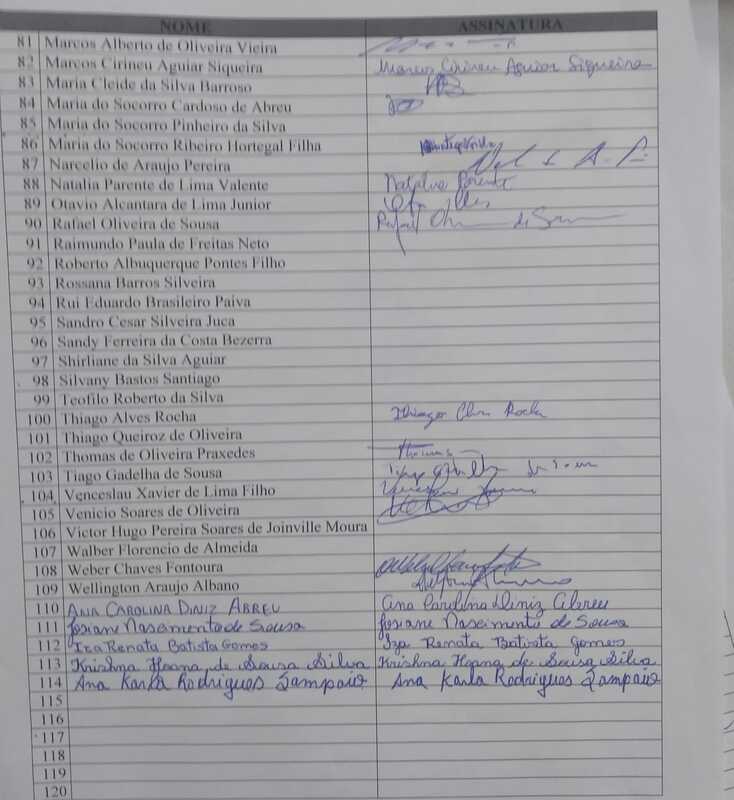 NOME ASSINATURA
81 Marcos Alberto de Oliveira Vieira
82 Marcos Cirineu Aguiar Siqueira Marcos Cirineu Aguiar Siqueira
83 Maria Cleide da Silva Barroso
84 Maria do Socorro Cardoso de Abreu
85 Maria do Socorro Pinheiro da Silva
86 Maria do Socorro Ribeiro Hortegal Filha
87 Narcelio de Araujo Pereira
88 Natalia Parente de Lima Valente Natalia Parente
89 Otavio Alcantara de Lima Junior
90 Rafael Oliveira de Sousa Rafael
91 Raimundo Paula de Freitas Neto
92 Roberto Albuquerque Pontes Filho
93 Rossana Barros Silveira
94 Rui Eduardo Brasileiro Paiva
95 Sandro Cesar Silveira Juca
96 Sandy Ferreira da Costa Bezerra
97 Shirliane da Silva Aguiar
98 Silvany Bastos Santiago
99 Teofilo Roberto da Silva
100 Thiago Alves Rocha Thiago Rocha
101 Thiago Queiroz de Oliveira
102 Thomas de Oliveira Praxedes Thomas
103 Tiago Gadelha de Sousa
104 Venceslau Xavier de Lima Filho
105 Venicio Soares de Oliveira
106 Victor Hugo Pereira Soares de Joinville Moura
107 Walber Florencio de Almeida
108 Weber Chaves Fontoura
109 Wellington Araujo Albano
110 ANA CAROLINA DINIZ ABREU Ana Carolina Diniz Abreu
111 Josiane Nascimento de Sousa Josiane Nascimento de Sousa
112 Iza Renata Batista Gomes Iza Renata Batista Gomes
113 Krishna Hoana de Sousa Silva Krishna Hoana de Sousa Silva
114 Ana Karla Rodrigues Sampaio Ana Karla Rodrigues Sampaio
115
116
117
118
119
120